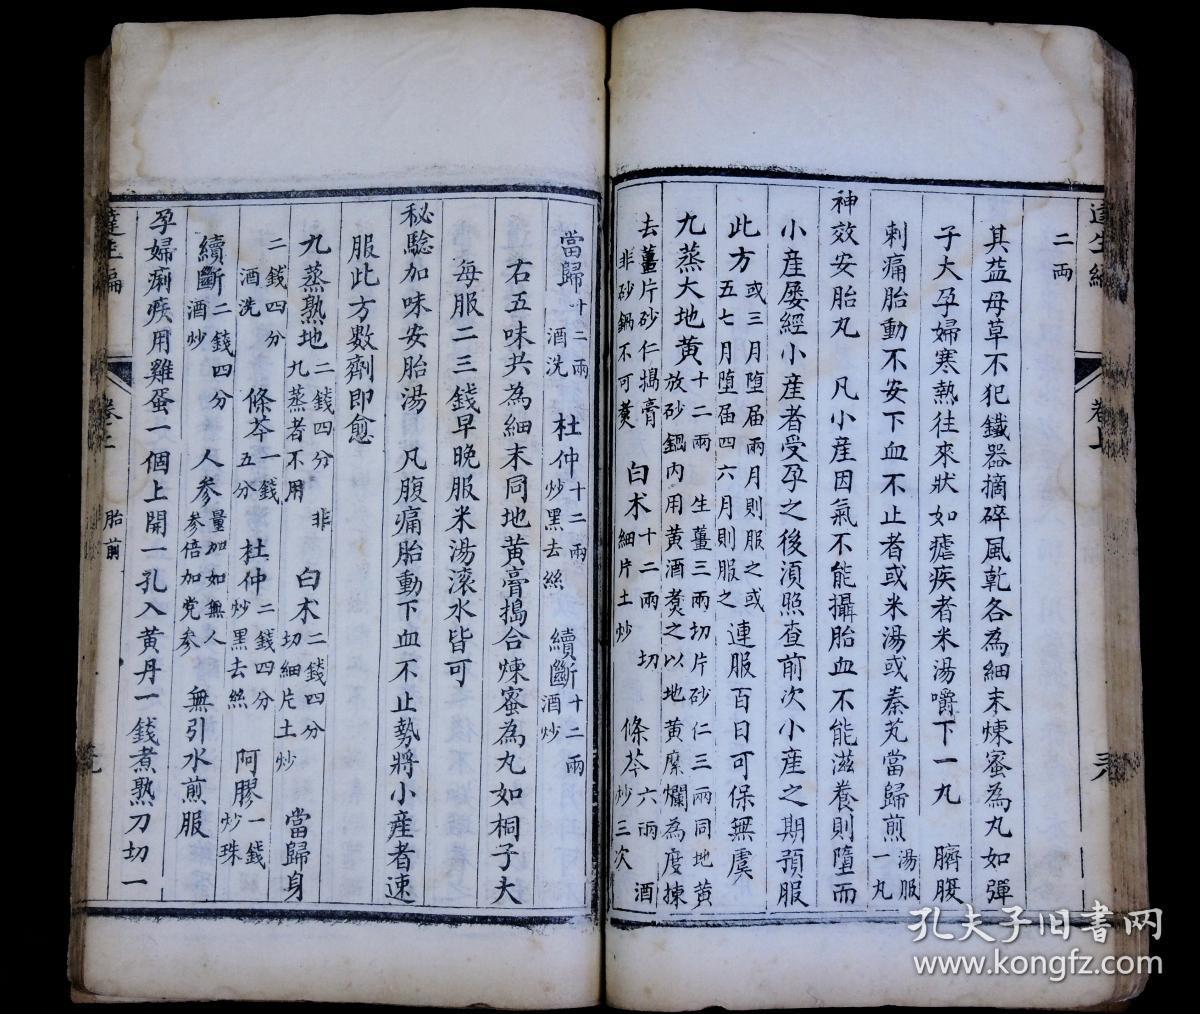 達生編
卷上
二両
其益母草不犯鐵器摘碎風乾各為細末煉蜜為丸如彈
子大孕婦寒熱往來狀如瘧疾者米湯嚼下一丸 臍腹
刺痛胎動不安下血不止者或米湯或秦艽當歸煎湯服一丸
神效安胎丸 凡小產因氣不能攝胎血不能滋養則墮而
小產屡經小產者受孕之後須照查前次小產之期預服
此方或三月墮届兩月則服之或五七月墮届四六月則服之連服百日可保無虞
九蒸大地黃十二兩 生薑三兩切片砂仁三兩同地黃放砂鍋内用黃酒煑之以地黃糜爛為度揀
去薑片砂仁搗膏非砂鍋不可煑 白朮十二兩切細片土炒 條芩六兩酒炒三次
當歸十二兩酒洗 杜仲十二兩炒黑去絲 續斷十二兩酒炒
右五味共為細末同地黃膏搗合煉蜜為丸如桐子大
每服二三錢早晚服米湯滾水皆可
秘驗加味安胎湯 凡腹痛胎動下血不止勢將小產者速
服此方數劑即愈
九蒸熟地二錢四分非九蒸者不用 白朮二錢四分切細片土炒 當歸身
二錢四分酒洗 條芩一錢五分 杜仲二錢四分炒黑去絲 阿膠一錢炒珠
續斷二錢四分酒炒 人參量加如無人參倍加党參 無引水煎服
孕婦痢疾用雞蛋一個上開一孔入黃丹一錢煮熟刀切一
達生編
卷上
胎前
孔夫子旧书网
www.kongfz.com